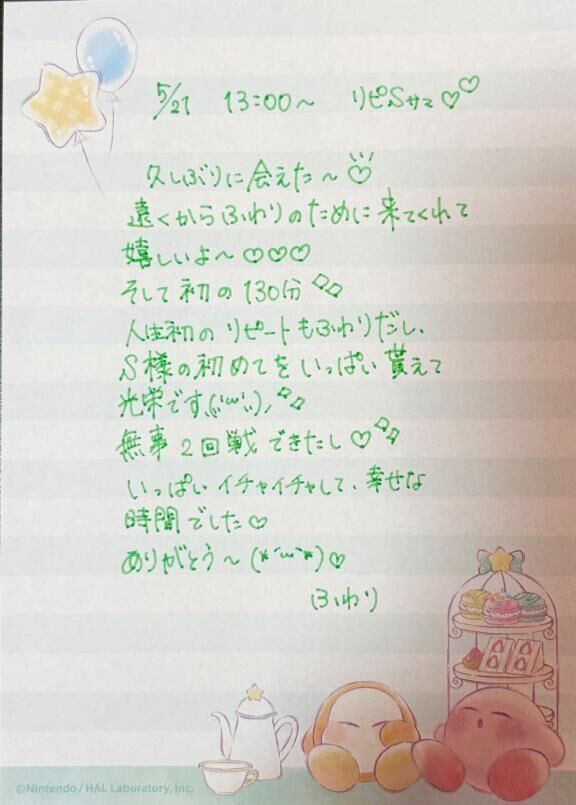 5/27 13:00〜 リピSサマ♡♡
久しぶりに会えた〜♡
遠くからふわりのために来てくれて
嬉しいよ〜♡♡♡
そして初の130分
人生初のリピートもふわりだし、
S様の初めてをいっぱい貰えて
光栄です,(˶'ω'˶),
無事2回戦できたし♡
いっぱいイチャイチャして、幸せな
時間でした♡
ありがとう〜(*´ω`*)♡
ふわり
©Nintendo / HAL Laboratory, Inc.